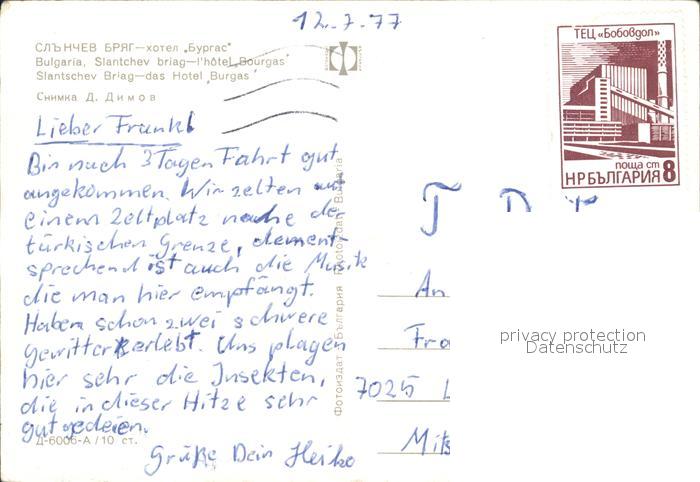 12.7.77
СЛЪНЧЕВ БРЯГ—хотел „Бургас"
Bulgaria, Slantchev briag—l'hôtel Bourgas
Slantschev Briag—das Hotel Burgas
Снимка Д. Димов
Lieber Frank!
Bin nach 3 Tagen Fahrt gut
angekommen. Wir zelten auf
einem Zeltplatz nahe der
türkischen Grenze, dement-
sprechend ist auch die Musik
die man hier empfängt.
Haben schon zwei schwere
Gewitter erlebt. Uns plagen
hier sehr die Insekten,
die in dieser Hitze sehr
gut gedeien.
Grüße Dein Heiko
Д-6006-А / 10 ст.
Фотоиздат България Photoizdat Bulgaria
ТЕЦ „Бобовдол"
поща ст
НРБЪЛГАРИЯ 8
An
Fra
7025 L
privacy protection
Datenschutz